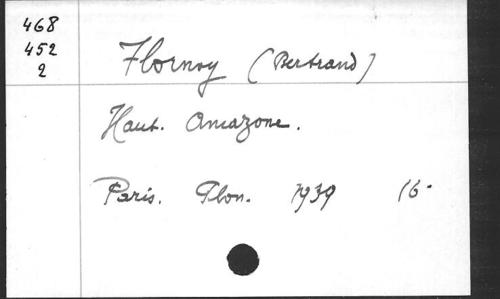 468
452
2
Flornoy (Bertrand)
Haut. Amazone.
Paris. Plon. 1939 16-